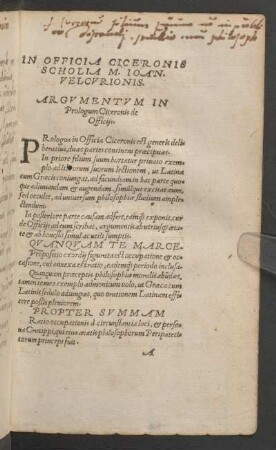 IN OFFICIA CICERONIS
SCHOLIA M. IOAN.
VELCVRIONIS.
ARGVMENTVM IN
Prologum Ciceronis de
Officijs.
PRologus in Officia Ciceronis est generis deli
beratiui, duas partes continens præcipuas.
In priore filium suum hortatur primùm exem-
plo ad librorum suorum lectionem, ut Latina
cum Græcis coniungat, ad facundiam in hac parte quo-
que alendam et augendam. simulque excitat eum,
sed occultè, ad uniuersum philosophiæ studium ample-
ctendum.
In posteriore parte causam adfert,
de Officijs ad eum scribat, argumentis ab utriusque æta-
te et ab honesto simul ac utili sumptis.
QVANQVAM TE MARCE.
Propositio exordij sumpta est occupatione et oc-
casione, cui annexa est ratio, initio periodo inclusa.
Quanquam præceptis philosophiæ moralis abundas,
tamen meo exemplo admonitum volo, ut Græca cum
Latinis sedulò adiungas, quo orationem Latinam effi-
cere possis pleniorem.
PROPTER SVMMAM
Ratio occupationis à circunstantia loci, et perso-
næ Cratippi, qui eius ætatis philosophorum Peripateti-
corum princeps fuit.
A